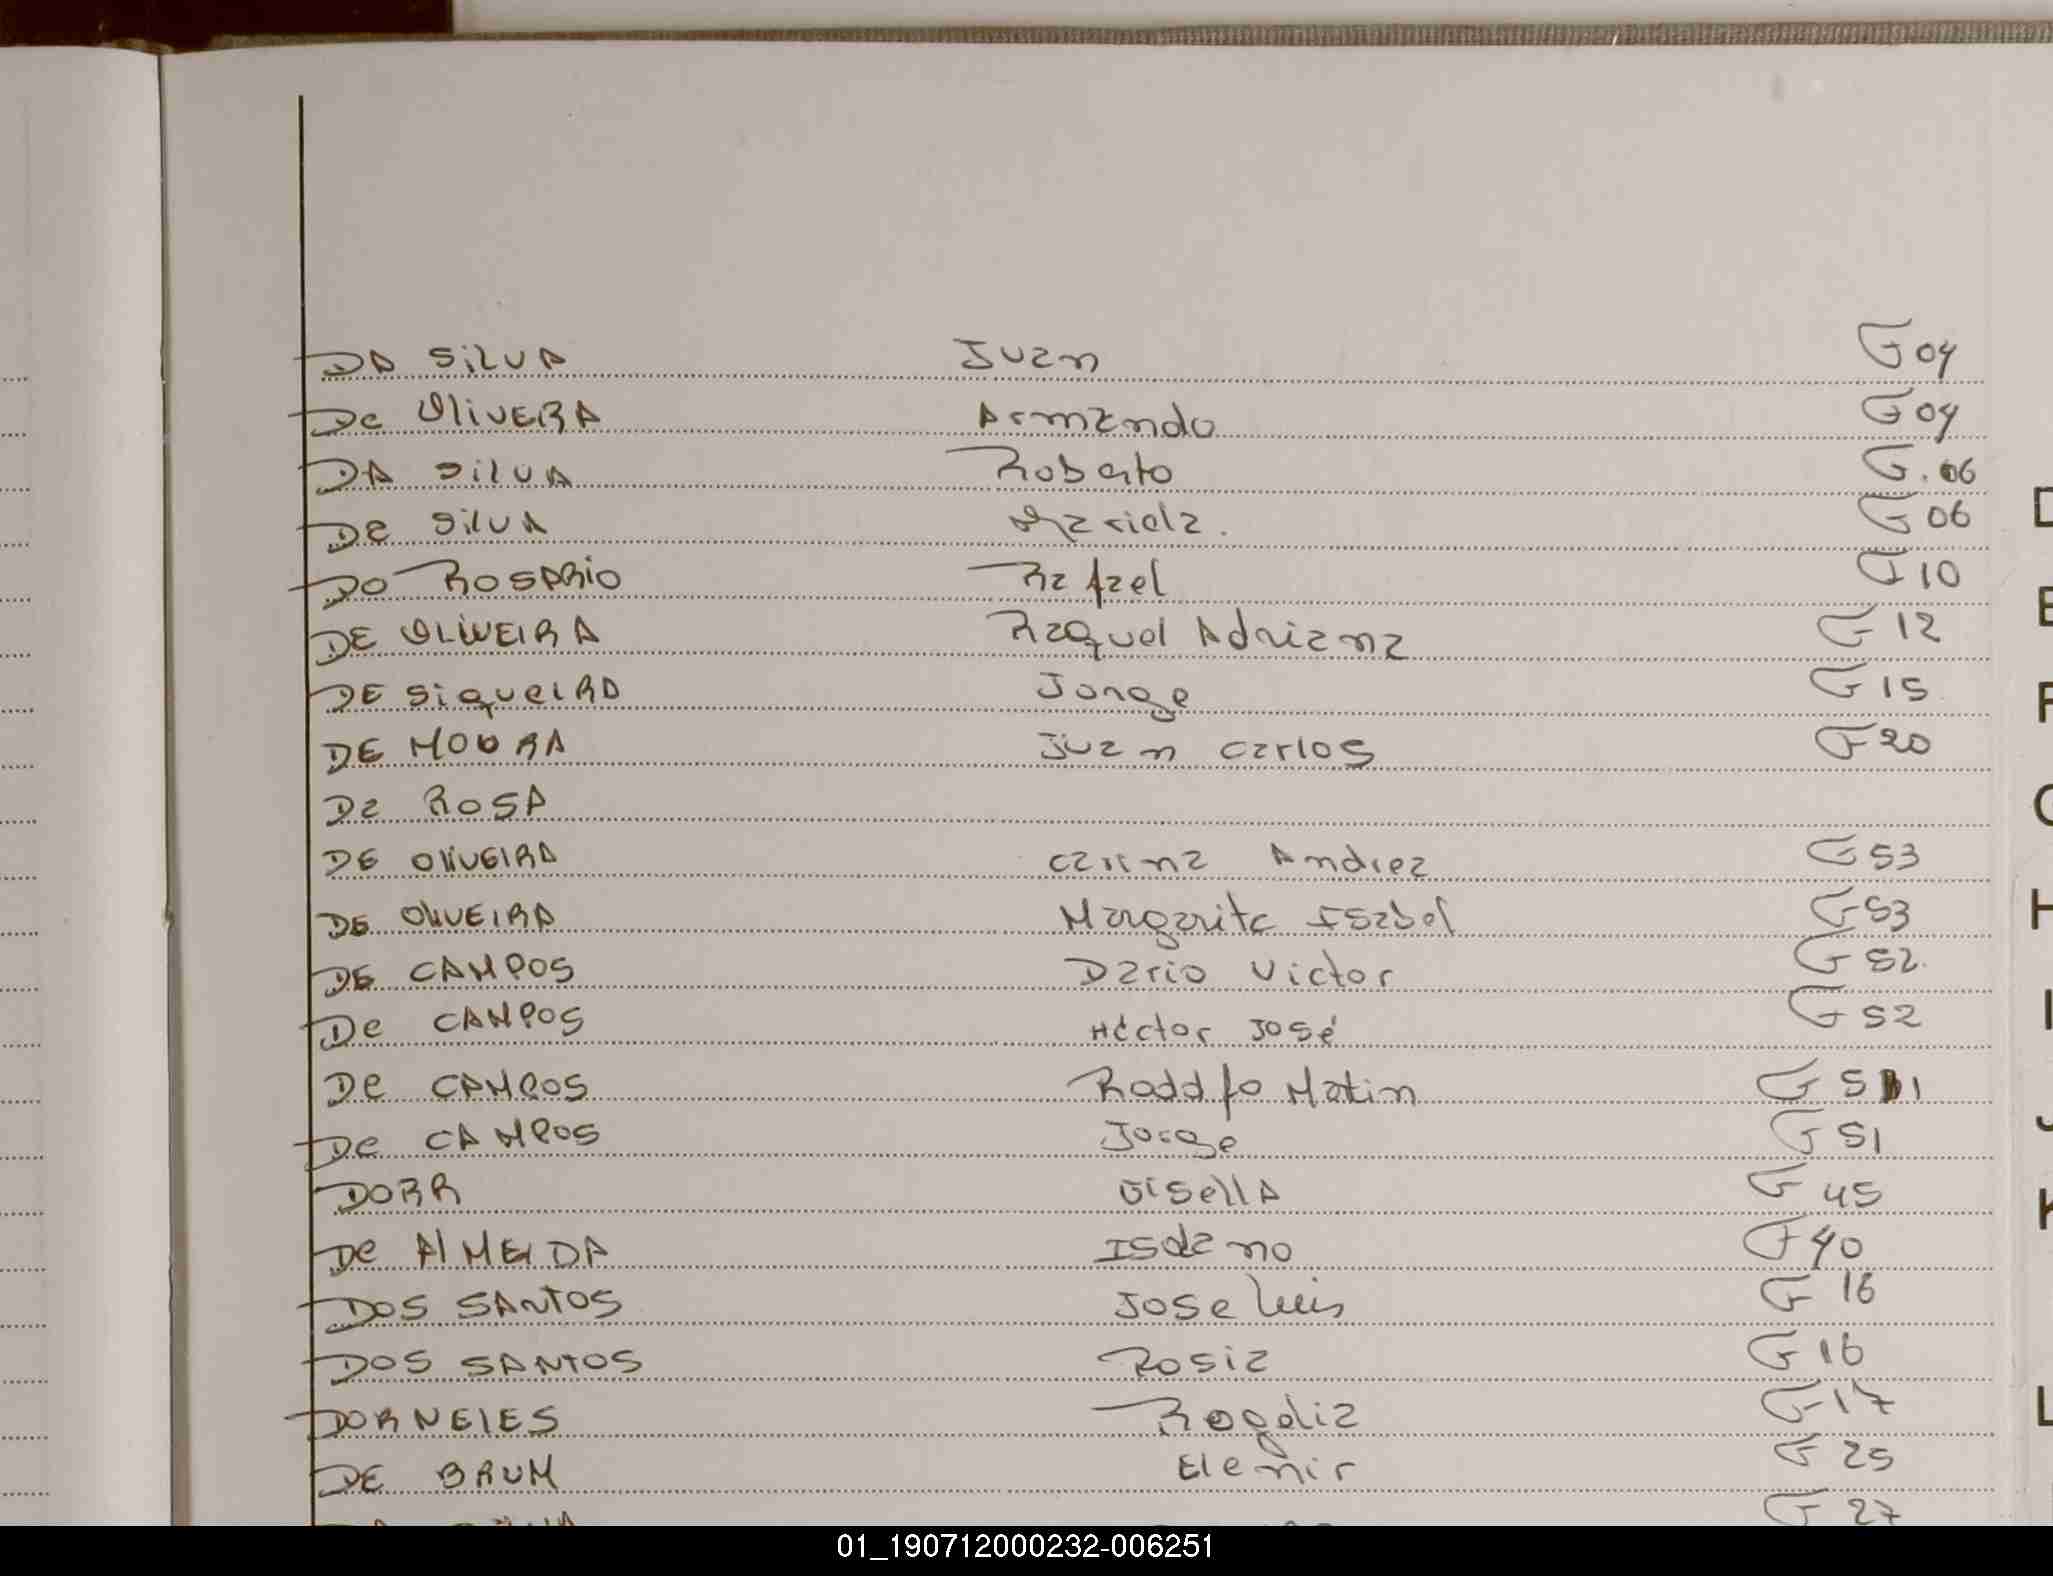 DA SILVA Juan G 04
De OliVERA Armando G 04
DA SilVA Roberto G.06
De SilVA Mariela. G 06
DO ROSARIO Rafael G 10
DE OLIVEIRA Raquel Adriana G 12
DE SiqueiRA Jorge G 15
DE MOURA Juan Carlos G 20
De ROSA
DE OliVEIRA Carina Andrea G 53
DE OliVEIRA Margarita Isabel G 53
DE CAMPOS Dario Victor G 52
De CAMPOS Héctor José G 52
De CAMPOS Rodolfo Matin G 51
De CAMPOS Jorge G 51
DORR GisellA G 45
De AlMEIDA G 40
DOS SANTOS Jose Luis G 16
DOS SANTOS Rosia G 16
DORNELES Rogelia G 17
DE BRUM Elenir G 25
DA SILVA G 27
D
E
F
G
H
I
J
K
L
01_190712000232-006251